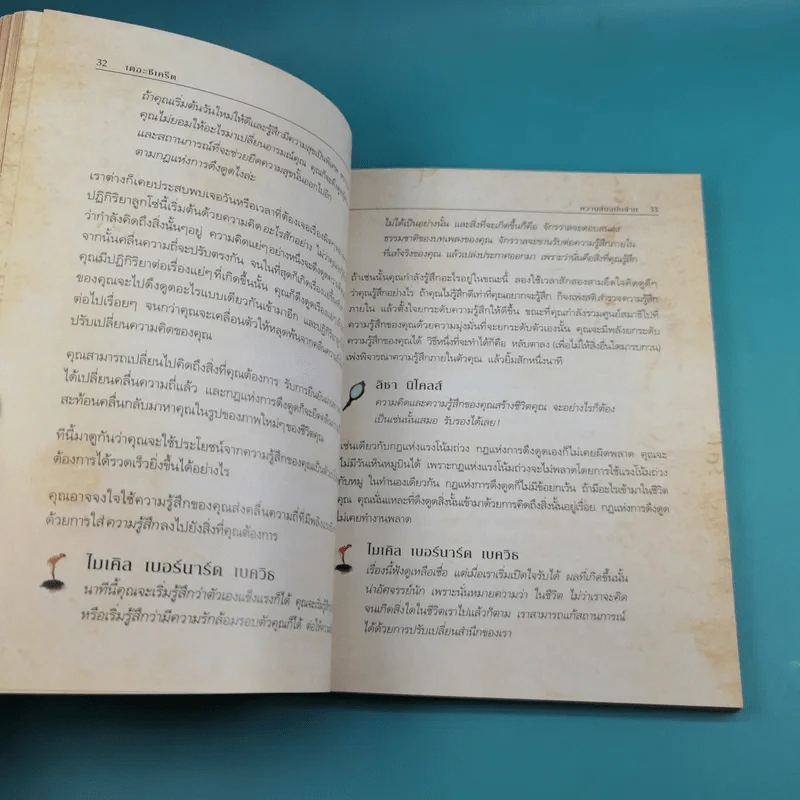 32 เดอะซีเคร็ต
ถ้าคุณเริ่มต้นวันใหม่ให้ดีและรู้สึกมีความสุขเป็นพิเศษ
คุณไม่ยอมให้อะไรมาเปลี่ยนอารมณ์คุณ คุณก็จะดึงดูด
และสถานการณ์ที่จะช่วยยืดความสุขนั้นออกไปอีก
ตามกฎแห่งการดึงดูดไงล่ะ
เราต่างก็เคยประสบพบเจอวันหรือเวลาที่ต้องเจอเรื่อง
ปฏิกิริยาลูกโซ่นี้เริ่มต้นด้วยความคิดอะไรสักอย่าง ไม่ว่าคุณจะ
ว่ากำลังคิดถึงสิ่งนั้นๆอยู่ ความคิดแย่ๆอย่างหนึ่งจะดึงดูดความ
จากนั้นคลื่นความถี่จะปรับตรงกัน จนในที่สุดก็เกิดเรื่อง
คุณมีปฏิกิริยาต่อเรื่องแย่ๆที่เกิดขึ้นนั้น คุณก็ดึงดูดเรื่อง
ของคุณจะไปดึงดูดอะไรแบบเดียวกันเข้ามาอีก และปฏิกิริยา
ต่อไปเรื่อยๆ จนกว่าคุณจะเคลื่อนตัวให้หลุดพ้นจากคลื่นความ
ปรับเปลี่ยนความคิดของคุณ
คุณสามารถเปลี่ยนไปคิดถึงสิ่งที่คุณต้องการ รับการยืนยัน
ได้เปลี่ยนคลื่นความถี่แล้ว และกฎแห่งการดึงดูดก็จะยึด
สะท้อนคลื่นกลับมาหาคุณในรูปของภาพใหม่ๆของชีวิตคุณ
ทีนี้มาดูกันว่าคุณจะใช้ประโยชน์จากความรู้สึกของคุณเป็นตัว
ต้องการได้รวดเร็วยิ่งขึ้นได้อย่างไร
คุณอาจจงใจใช้ความรู้สึกของคุณส่งคลื่นความถี่ที่มีพลัง
ด้วยการใส่ความรู้สึกลงไปยังสิ่งที่คุณต้องการ
ไมเคิล เบอร์นาร์ด เบควิธ
นาทีนี้คุณจะเริ่มรู้สึกว่าตัวเองแข็งแรงก็ได้ คุณจะเริ่มรู้สึก
หรือเริ่มรู้สึกว่ามีความรักล้อมรอบตัวคุณก็ได้ ต่อให้
33
ไม่ได้เป็นอย่างนั้น และสิ่งที่จะเกิดขึ้นก็คือ จักรวาลจะตอบสนอง
ธรรมชาติของบทเพลงของคุณ จักรวาลจะขานรับต่อความรู้สึกภายใน
ที่แท้จริงของคุณ แล้วเปล่งประกาศออกมา เพราะว่านั่นคือสิ่งที่คุณรู้สึก
ถ้าเช่นนั้นคุณกำลังรู้สึกอะไรอยู่ในขณะนี้ ลองใช้เวลาสักสองสามอึดใจคิดดูดีๆ
ว่าคุณรู้สึกอย่างไร ถ้าคุณไม่รู้สึกดีเท่าที่คุณอยากจะรู้สึก ก็จงเพ่งสติสำรวจความรู้สึก
ภายใน แล้วตั้งใจยกระดับความรู้สึกให้ดีขึ้น ขณะที่คุณกำลังรวมศูนย์สมาธิไปที่
ความรู้สึกของคุณด้วยความมุ่งมั่นที่จะยกระดับตัวเองนั้น คุณจะมีพลังยกระดับ
ความรู้สึกของคุณได้ วิธีหนึ่งที่จะทำได้ก็คือ หลับตาลง (เพื่อไม่ให้สิ่งอื่นใดมารบกวน)
เพ่งพิจารณาความรู้สึกภายในตัวคุณ แล้วยิ้มสักหนึ่งนาที
ลิซา นิโคลส์
ความคิดและความรู้สึกของคุณสร้างชีวิตคุณ จะอย่างไรก็ต้อง
เป็นเช่นนั้นเสมอ รับรองได้เลย!
เช่นเดียวกับกฎแห่งแรงโน้มถ่วง กฎแห่งการดึงดูดเองก็ไม่เคยผิดพลาด คุณจะ
ไม่มีวันเห็นหมูบินได้ เพราะกฎแห่งแรงโน้มถ่วงจะไม่พลาดโดยการใช้แรงโน้มถ่วง
กับหมู ในทำนองเดียวกัน กฎแห่งการดึงดูดก็ไม่มีข้อยกเว้น ถ้ามีอะไรเข้ามาในชีวิต
คุณ คุณนั่นแหละที่ดึงดูดสิ่งนั้นเข้ามาด้วยการคิดถึงสิ่งนั้นอยู่เรื่อย กฎแห่งการดึงดูด
ไม่เคยทำงานพลาด
ไมเคิล เบอร์นาร์ด เบควิธ
เรื่องนี้ฟังดูเหลือเชื่อ แต่เมื่อเราเริ่มเปิดใจรับได้ ผลที่เกิดขึ้นนั้น
น่าอัศจรรย์นัก เพราะนั่นหมายความว่า ในชีวิต ไม่ว่าเราจะคิด
จนเกิดสิ่งใดในชีวิตเราไปแล้วก็ตาม เราสามารถแก้สถานการณ์
ได้ด้วยการปรับเปลี่ยนสำนึกของเรา